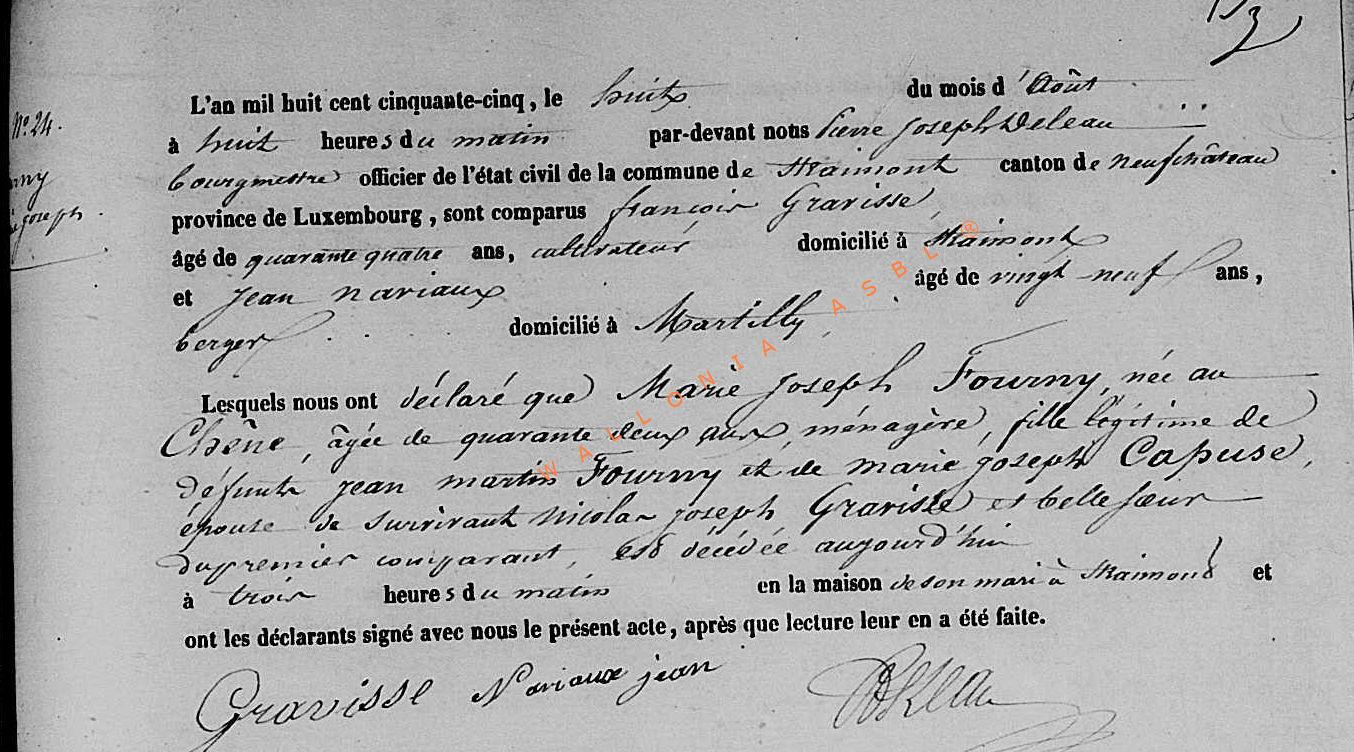 153
L'an mil huit cent cinquante-cinq, le huit du mois d'Août
N° 24.
à huit heures du matin par-devant nous Pierre Joseph Deleau
bourgmestre officier de l'état civil de la commune de Straimont canton de Neufchâteau
province de Luxembourg, sont comparus françois Gravisse,
joseph
âgé de quarante quatre ans, cultivateur domicilié à Straimont
et jean nariaux âgé de vingt neuf ans,
berger domicilié à Martilly,
Lesquels nous ont déclaré que Marie joseph Fourny, née au
Chêne, âgée de quarante deux ans, ménagère, fille légitime de
défunts jean martin Fourny et de marie joseph Capuse,
épouse de survivant Nicolas joseph Gravisse et belle sœur
du premier comparant, est décédée aujourd'hui
à trois heures du matin en la maison de son mari à Straimont et
ont les déclarants signé avec nous le présent acte, après que lecture leur en a été faite.
Gravisse Nariaux jean Deleau
WALLONIA ASBL ®